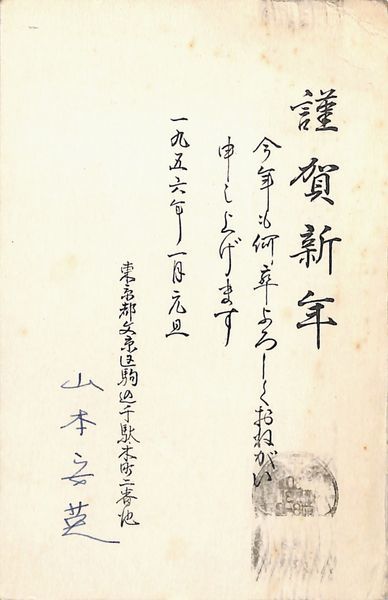 謹賀新年
今年も何卒よろしくおねがい
申し上げます
一九五六年一月元旦
東京都文京区駒込千駄木町二番地
山本安英